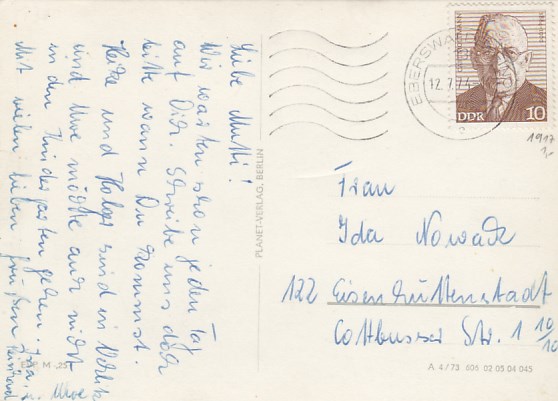 Liebe Mutti!
Wir warten schon jeden Tag
auf Dich. Schreibe uns doch
bitte wann Du kommst.
Heike und Holger sind in
und Uwe möchte auch nicht
in den Kindergarten gehen.
Mit vielen lieben Grüßen
Uwe
PLANET-VERLAG, BERLIN
M -,25
EBERSWALDE
12.7.77
DDR
10
1917
1,-
Frau
Ida Nowack
122 Eisenhüttenstadt
Cottbuser Str. 1 10/10
A 4/73 605 02 05 04 045